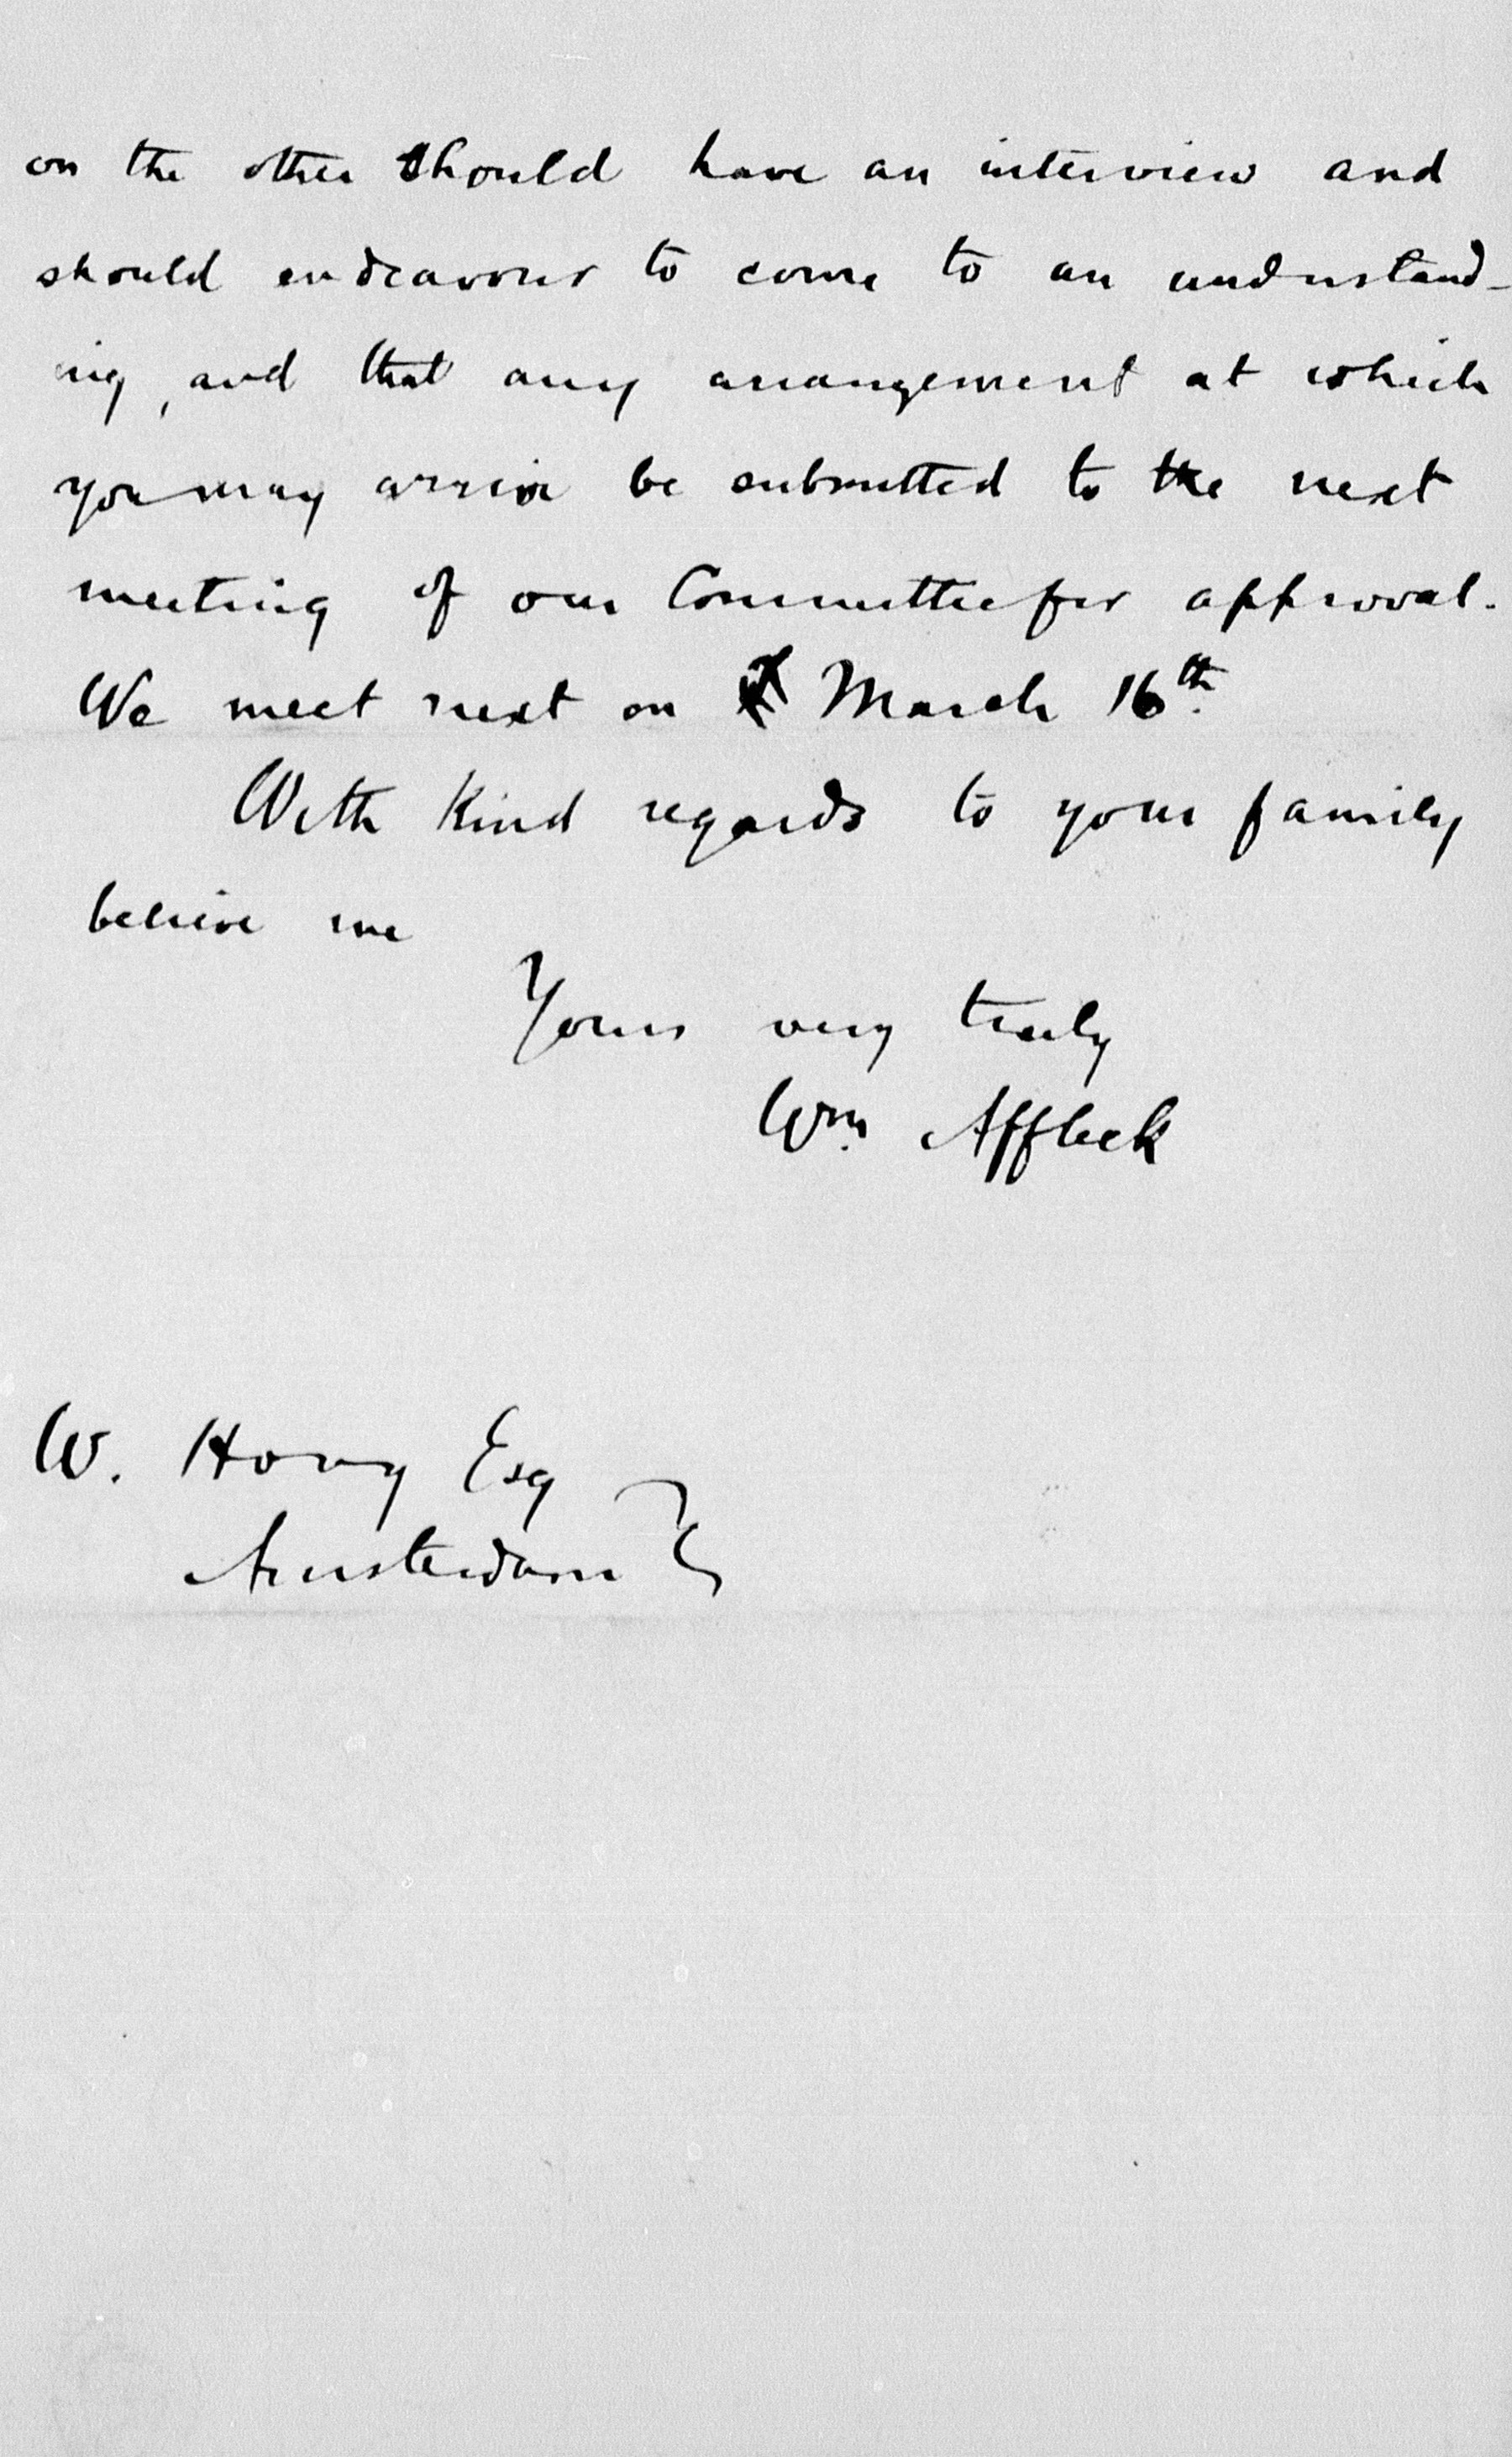 on the other should have an interview and
should endeavour to come to an understand-
ing, and that any arrangement at which
you may arrive be submitted to the next
meeting of our Committee for approval.
We meet next on March 16th.
With kind regards to your family
believe me
Yours very truly
Wm. Affleck
W. Hovy Esq
Amsterdam